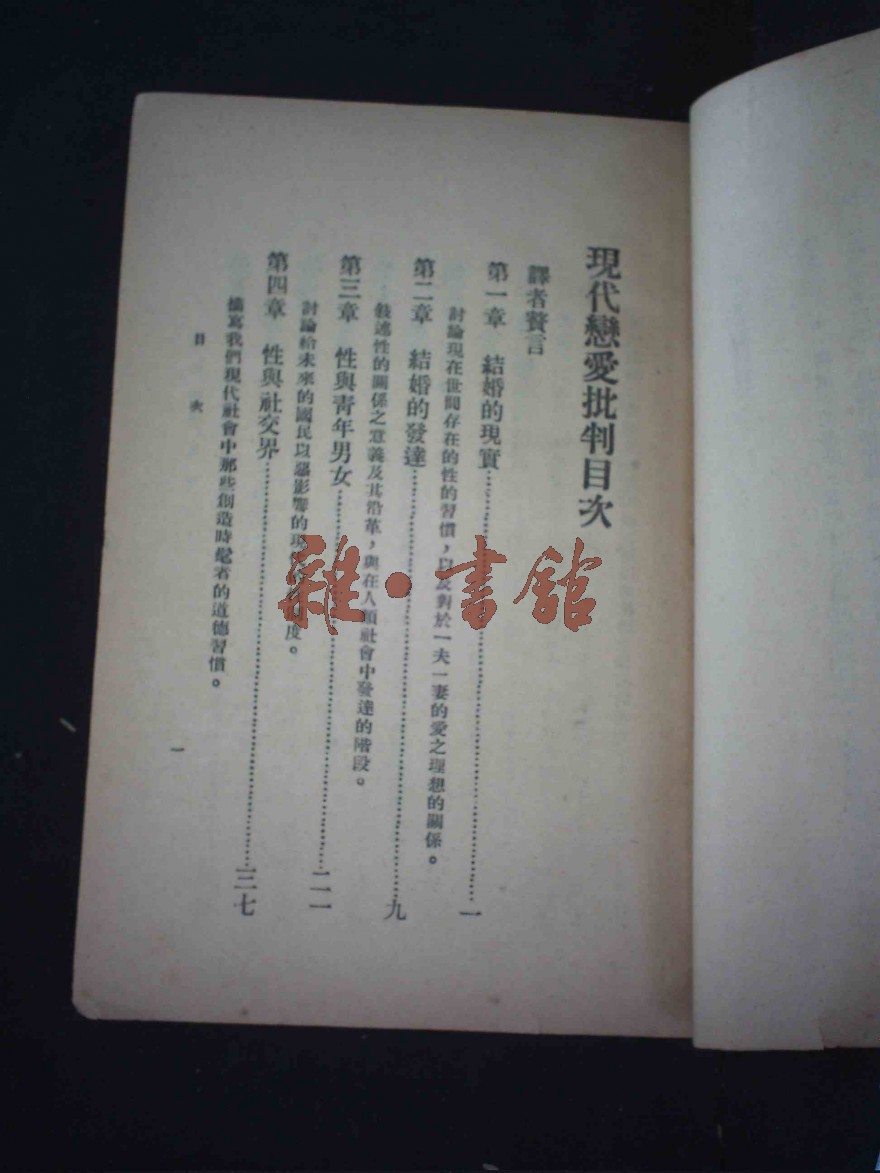 現代戀愛批判目次
譯者贅言
第一章 結婚的現實…………一
討論現在世間存在的性的習慣，以及對於一夫一妻的愛之理想的關係。
第二章 結婚的發達…………九
敍述性的關係之意義及其沿革，與在人類社會中發達的階段。
第三章 性與青年男女…………二一
討論給未來的國民以惡影響的現 度。
第四章 性與社交界…………三七
描寫我們現代社會中那些創造時髦者的道德習慣。
目 次
一
雜·書館